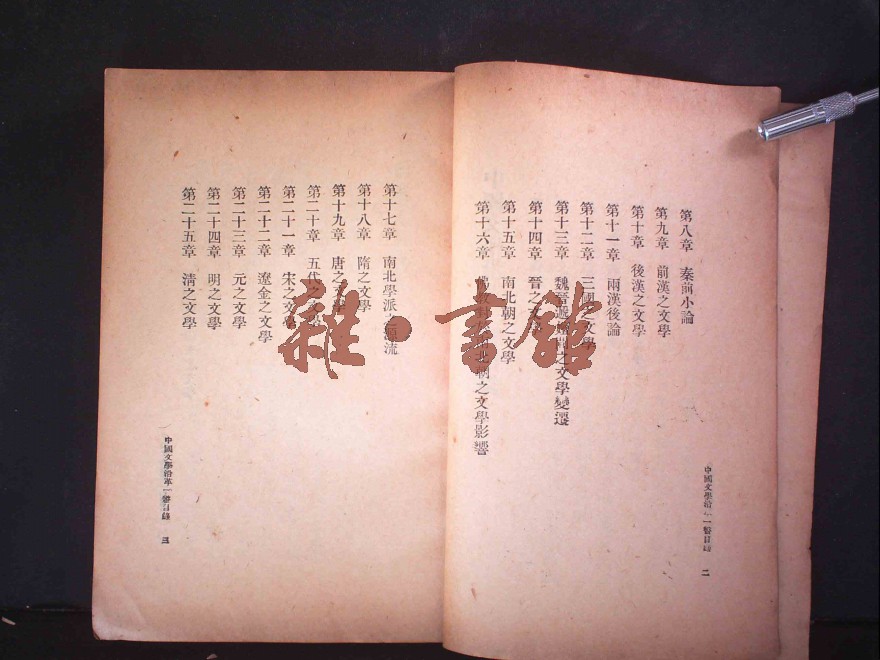 第八章　秦前小論
第九章　前漢之文學
第十章　後漢之文學
第十一章　兩漢後論
第十二章　三國之文學
第十三章　魏晉之文學變遷
第十四章　晉之文學
第十五章　南北朝之文學
第十六章　北朝之文學影響
中國文學沿一瞥目錄　二
第十七章　南北學派流
第十八章　隋之文學
第十九章　唐之文學
第二十章　五代之文學
第二十一章　宋之文學
第二十二章　遼金之文學
第二十三章　元之文學
第二十四章　明之文學
第二十五章　清之文學
中國文學沿革一瞥目錄　三
雜·書館